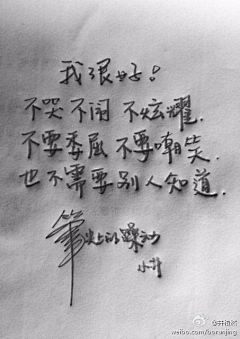 我很好!
不哭 不闹 不炫耀.
不要委屈 不要嘲笑.
也不需要别人知道.
笔尖上的躁动
小井
weibo.com/borunjing